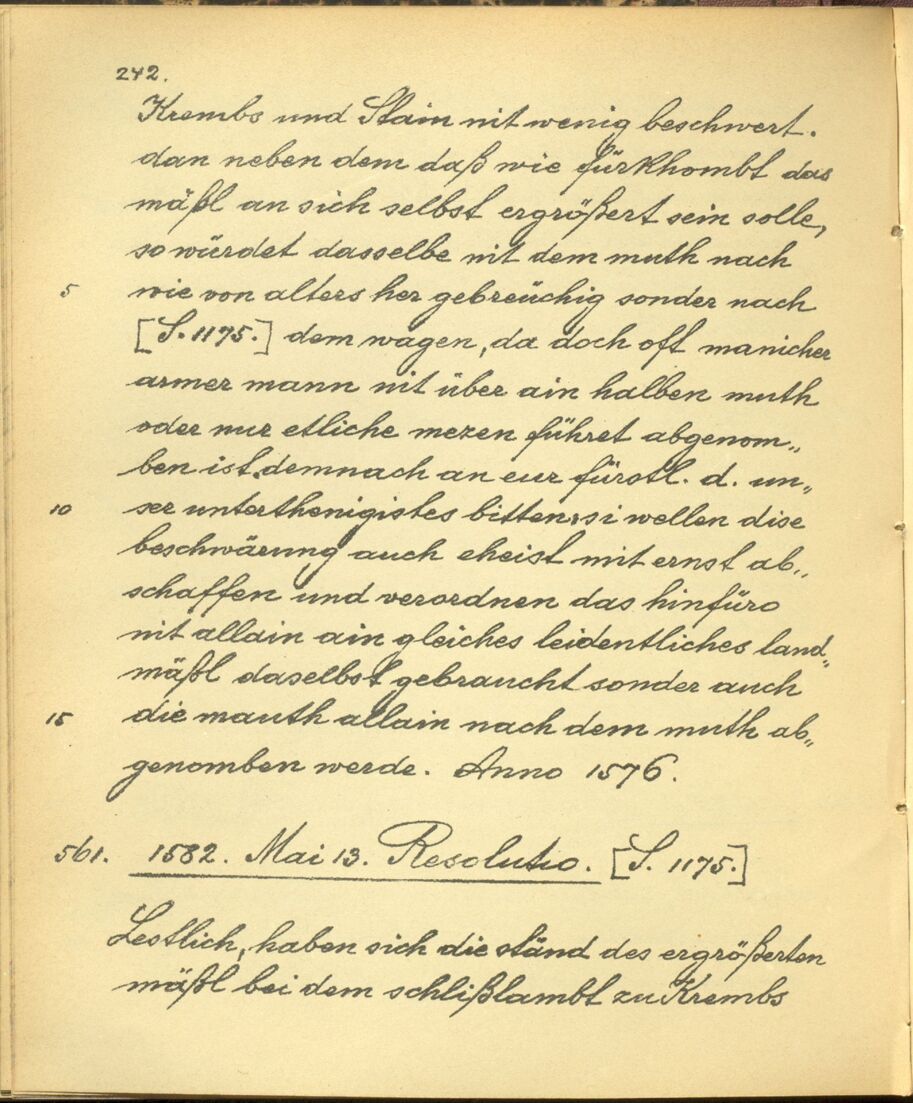 242.
Krembs und Stain nit wenig beschwert.
dan neben dem daß wie fürkhombt das
mäßl an sich selbst ergrößert sein solle,
so würdet dasselbe nit dem muth nach
5 wie von alters her gebreüchig sonder nach
[S. 1175.] dem wagen, da doch oft manicher
armer mann nit über ain halben muth
oder nur etliche mezen führet abgenom„
ben ist. demnach an eur fürstl. d. un„
10 ser unterthenigistes bitten, si wellen dise
beschwärung auch eheist mit ernst ab„
schaffen und verordnen das hinfüro
nit allain ain gleiches leidentliches land„
mäßl daselbst gebraucht sonder auch
15 die mauth allain nach dem muth ab„
genomben werde. Anno 1576.
561. 1582. Mai 13. Resolutio. [S. 1175.]
Lestlich, haben sich die ständ des ergrößerten
mäßl bei dem schlißlambt zu Krembs